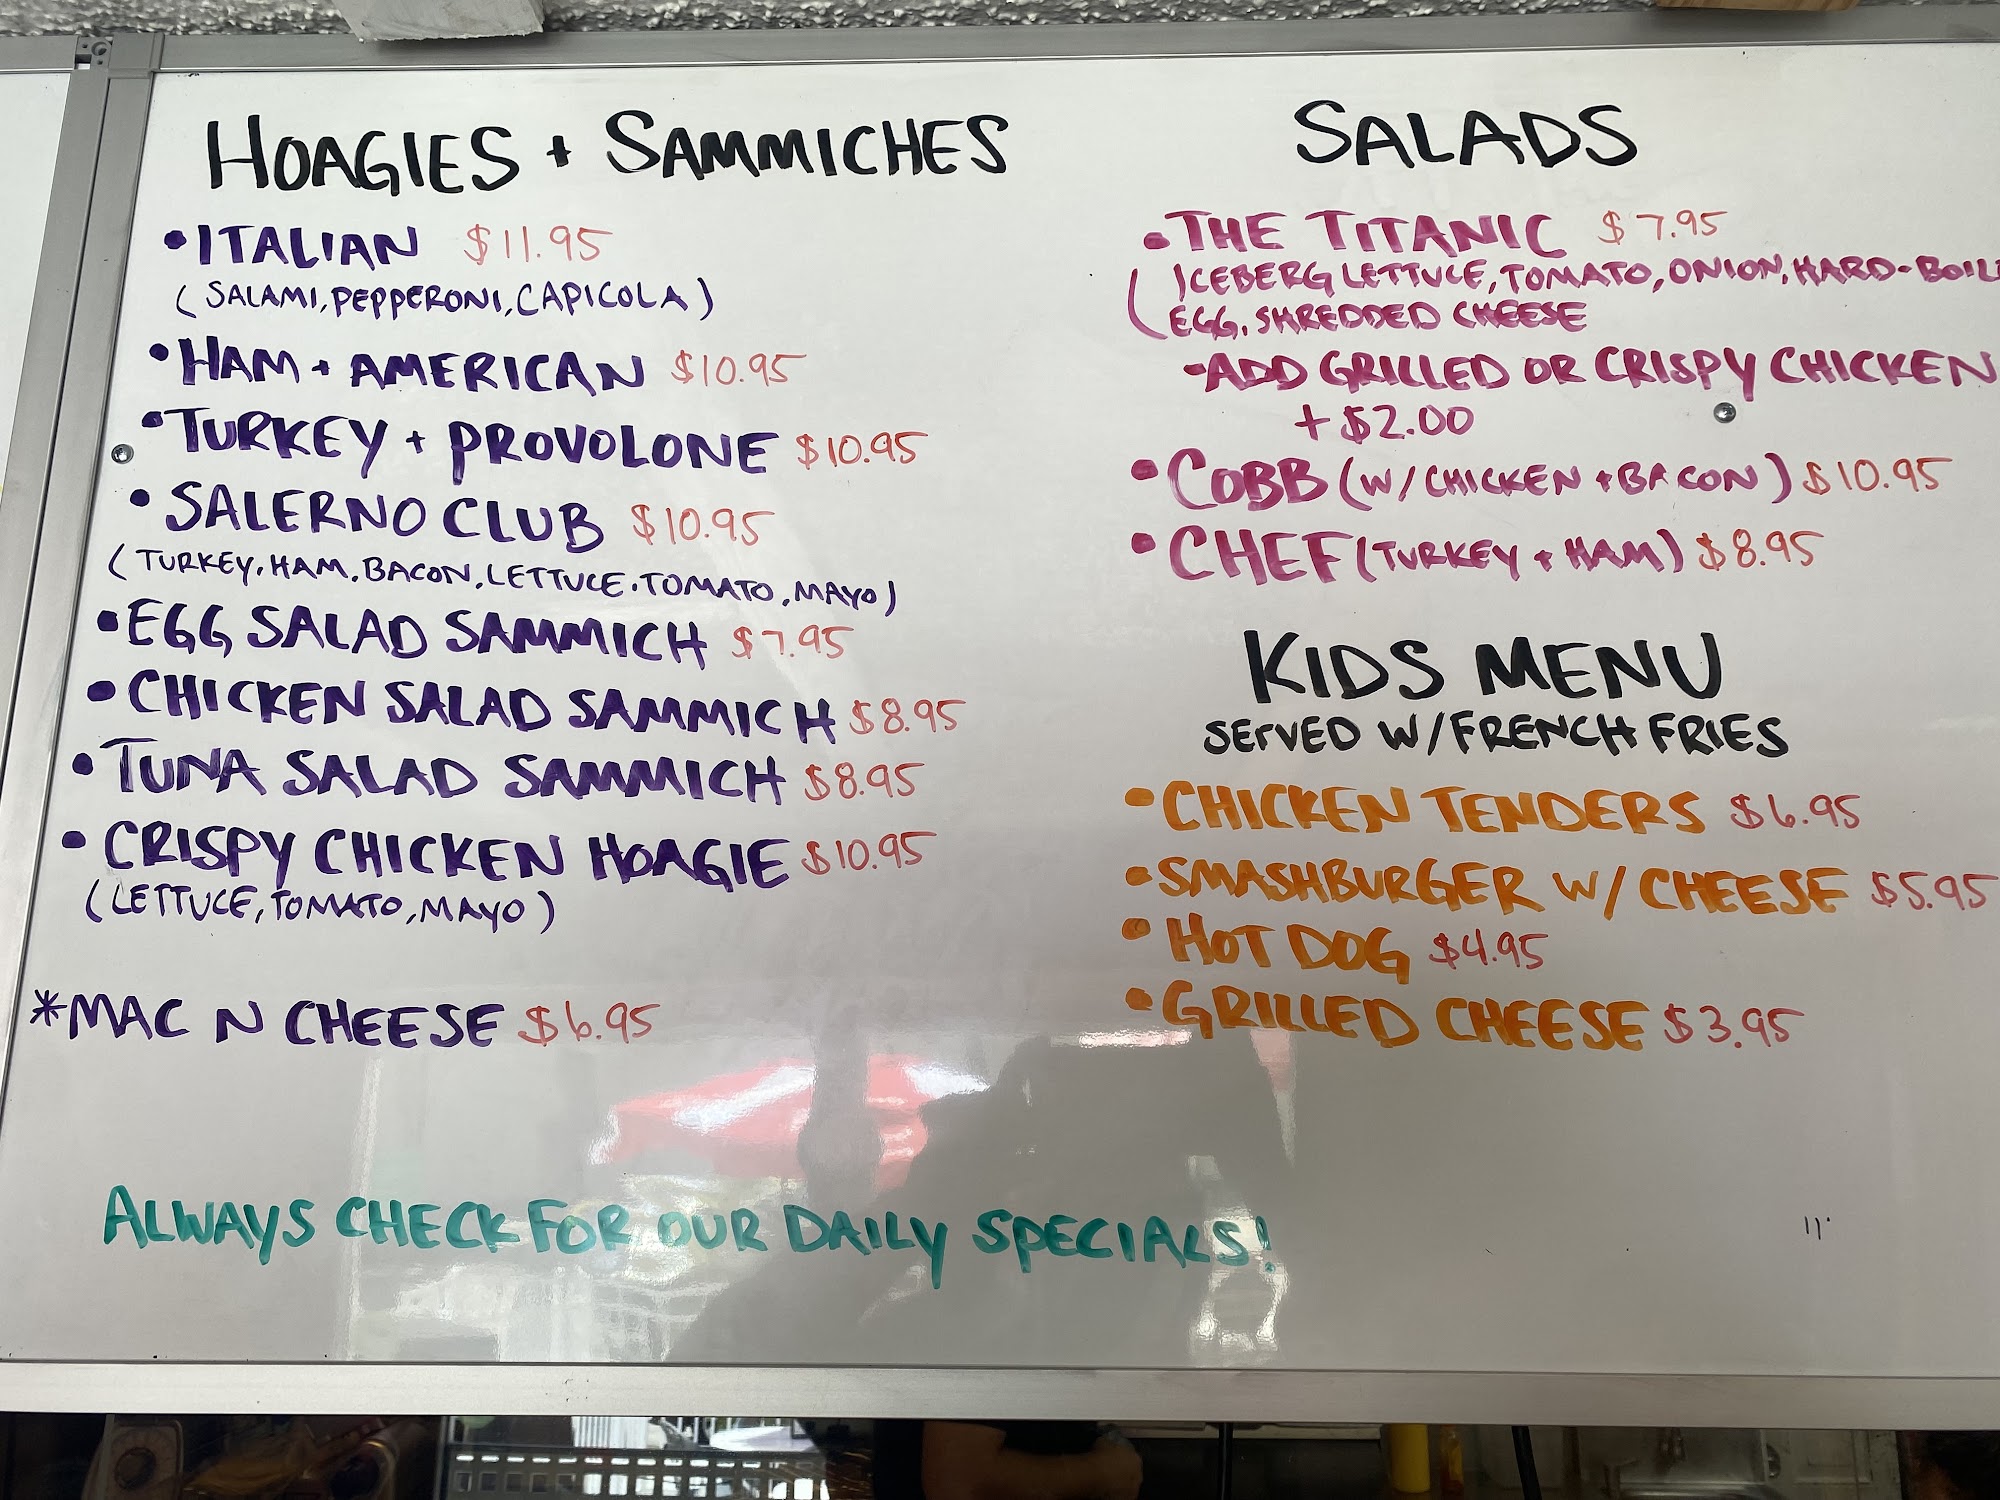 HOAGIES + SAMMICHES
• ITALIAN $11.95
(SALAMI, PEPPERONI, CAPICOLA)
• HAM + AMERICAN $10.95
• TURKEY + PROVOLONE $10.95
• SALERNO CLUB $10.95
(TURKEY, HAM, BACON, LETTUCE, TOMATO, MAYO)
• EGG SALAD SAMMICH $7.95
• CHICKEN SALAD SAMMICH $8.95
• TUNA SALAD SAMMICH $8.95
• CRISPY CHICKEN HOAGIE $10.95
(LETTUCE, TOMATO, MAYO)
*MAC N CHEESE $6.95
SALADS
• THE TITANIC $7.95
(ICEBERG LETTUCE, TOMATO, ONION, HARD-BOIL
EGG, SHREDDED CHEESE
-ADD GRILLED OR CRISPY CHICKEN
+ $2.00
• COBB (W/CHICKEN + BACON) $10.95
• CHEF (TURKEY + HAM) $8.95
KIDS MENU
SERVED W/FRENCH FRIES
• CHICKEN TENDERS $6.95
• SMASHBURGER W/ CHEESE $5.95
• HOT DOG $4.95
• GRILLED CHEESE $3.95
ALWAYS CHECK FOR OUR DAILY SPECIALS!